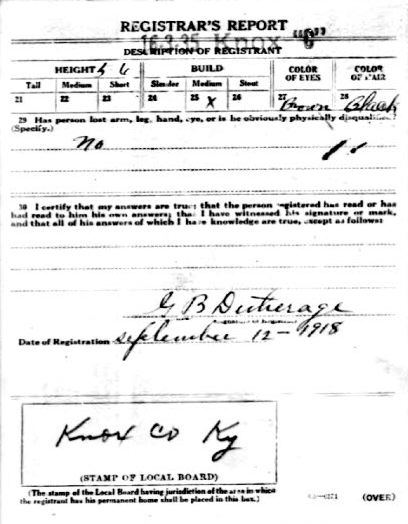 REGISTRAR'S REPORT
16-2-35 Knox "C"
DESCRIPTION OF REGISTRANT
HEIGHT 5 6 BUILD COLOR OF EYES COLOR OF HAIR
Tall Medium Short Slender Medium Stout
21 22 23 24 25 X 26 27 Brown 28 Black
29 Has person lost arm, leg, hand, eye, or is he obviously physically disqualified?
(Specify.)
No
30 I certify that my answers are true; that the person registered has read or has
had read to him his own answers; that I have witnessed his signature or mark,
and that all of his answers of which I have knowledge are true, except as follows:
G B Dutherage
Date of Registration September 12-1918
Knox Co Ky
(STAMP OF LOCAL BOARD)
(The stamp of the Local Board having jurisdiction of the area in which
the registrant has his permanent home shall be placed in this box.)
(OVER)